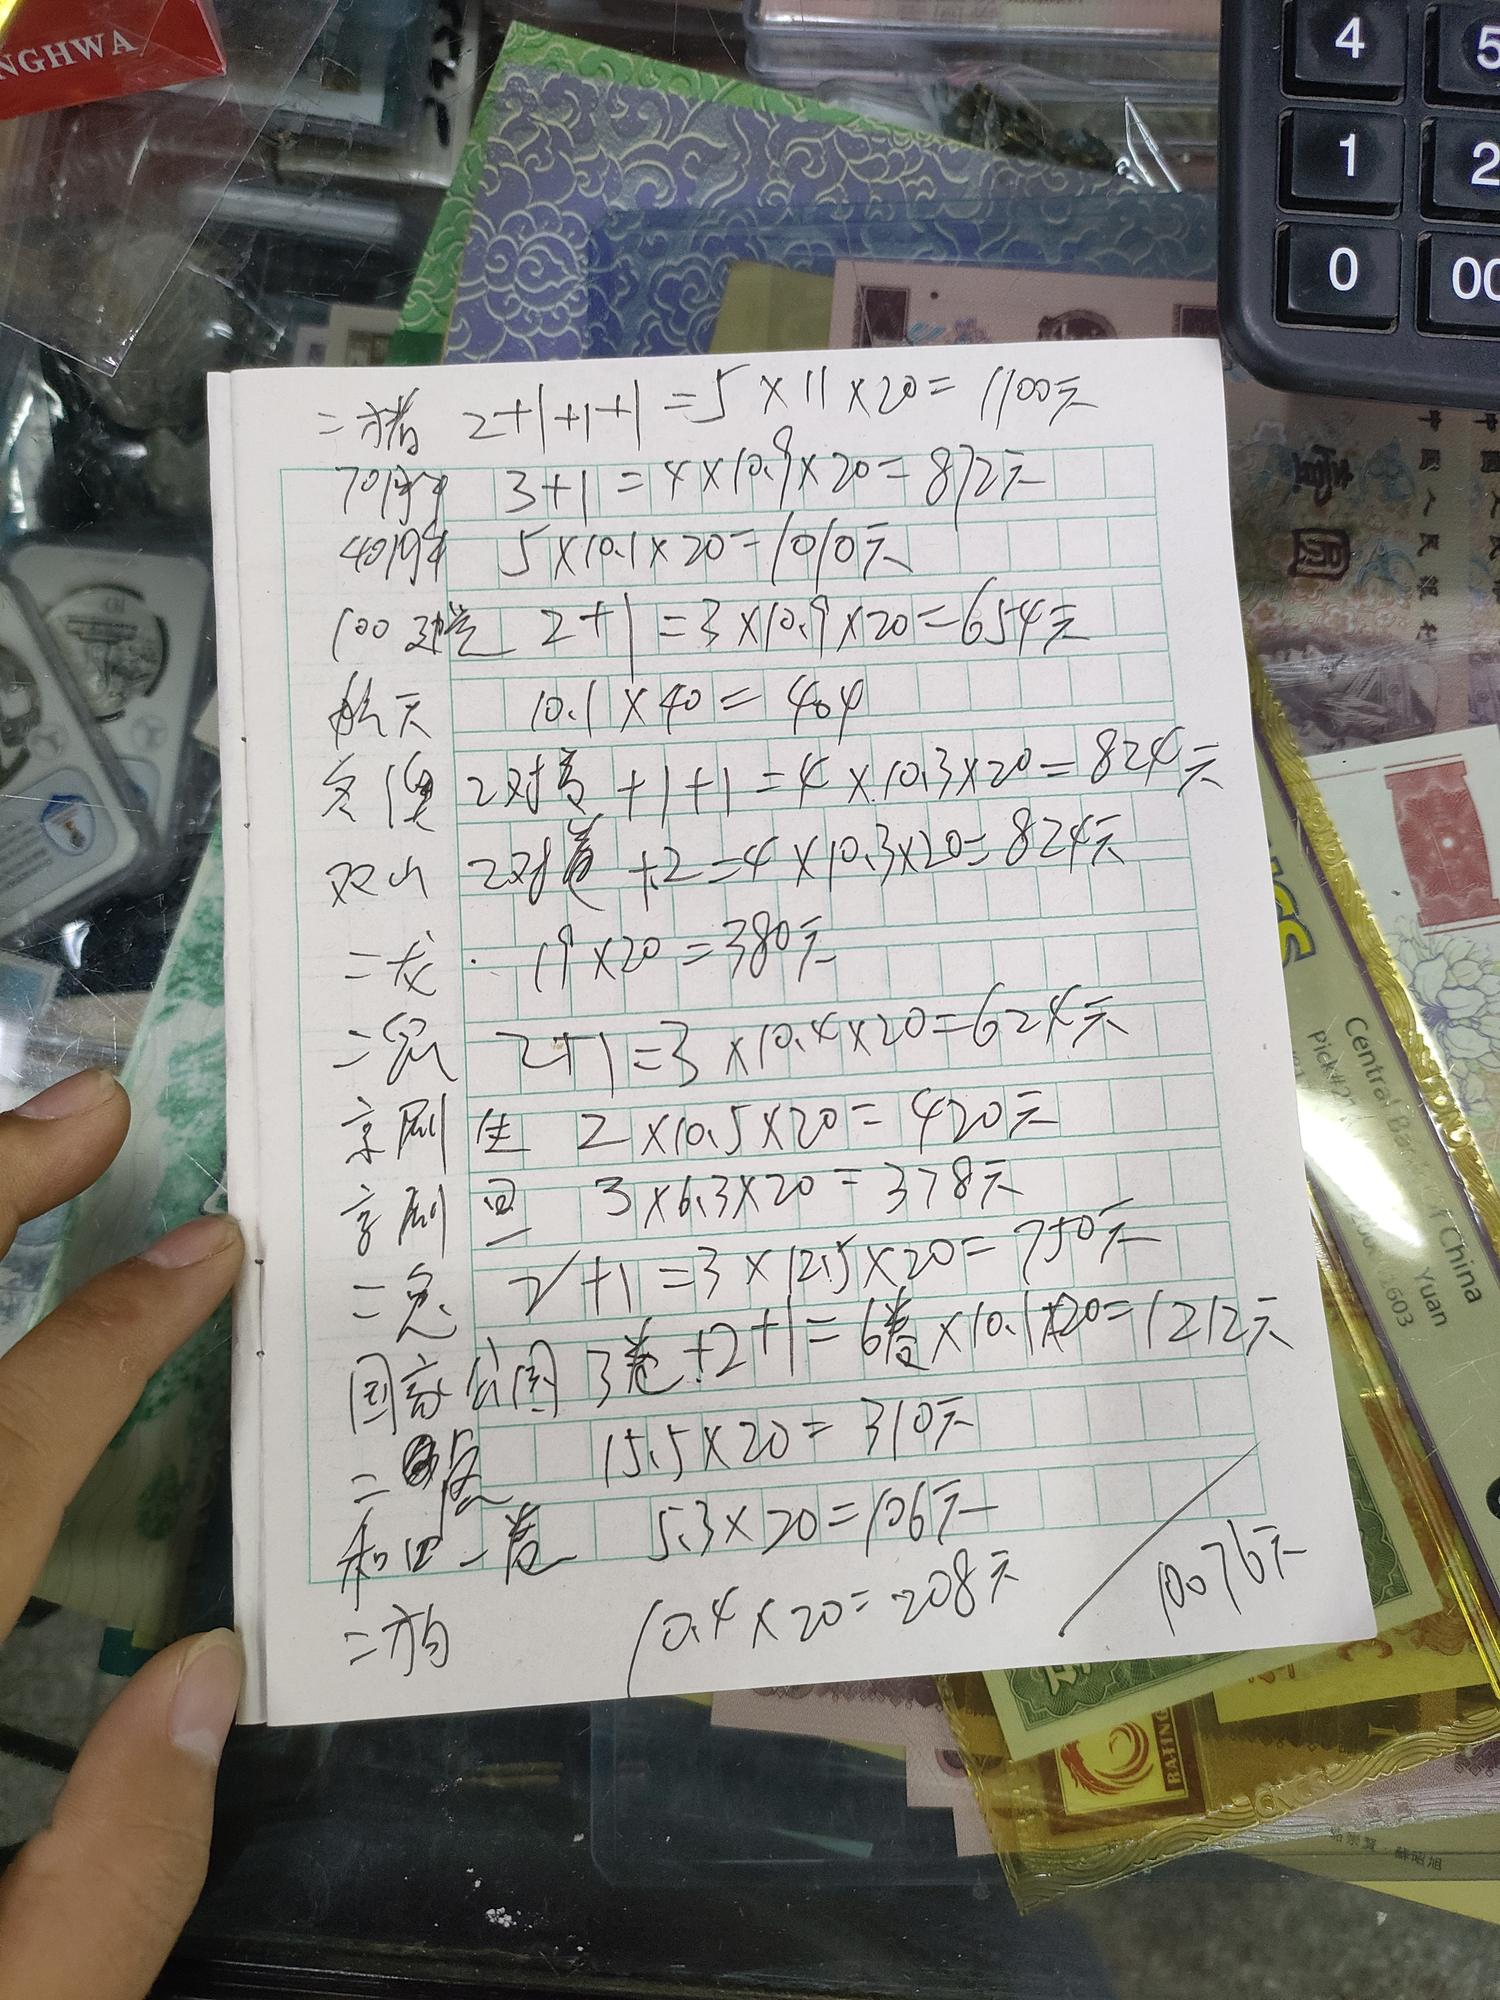 NGHWA
4 5
1 2
0 00
二猪 2+1+1+1=5×11×20=1100元
70周年 3+1=4×10.9×20=872元
40周年 5×10.1×20=1010元
100 建党 2+1=3×10.9×20=654元
航天 10.1×40=404
2对卷+1+1=4×10.3×20=824元
双山 2对卷+2=4×10.3×20=824元
二龙 19×20=380元
二鼠 2+1=3×10.4×20=624元
京剧 生 2×10.5×20=420元
京剧 旦 3×6.3×20=378元
二兔 2+1=3×12.5×20=750元
国家公园 3卷+2+1=6卷×10.1×20=1212元
二 15.5×20=310元
和四一卷 5.3×20=106元
二狗 10.4×20=208元
10076元
壹
圆
中国人民银
Central Ba of China
Pick#
Yuan
1603